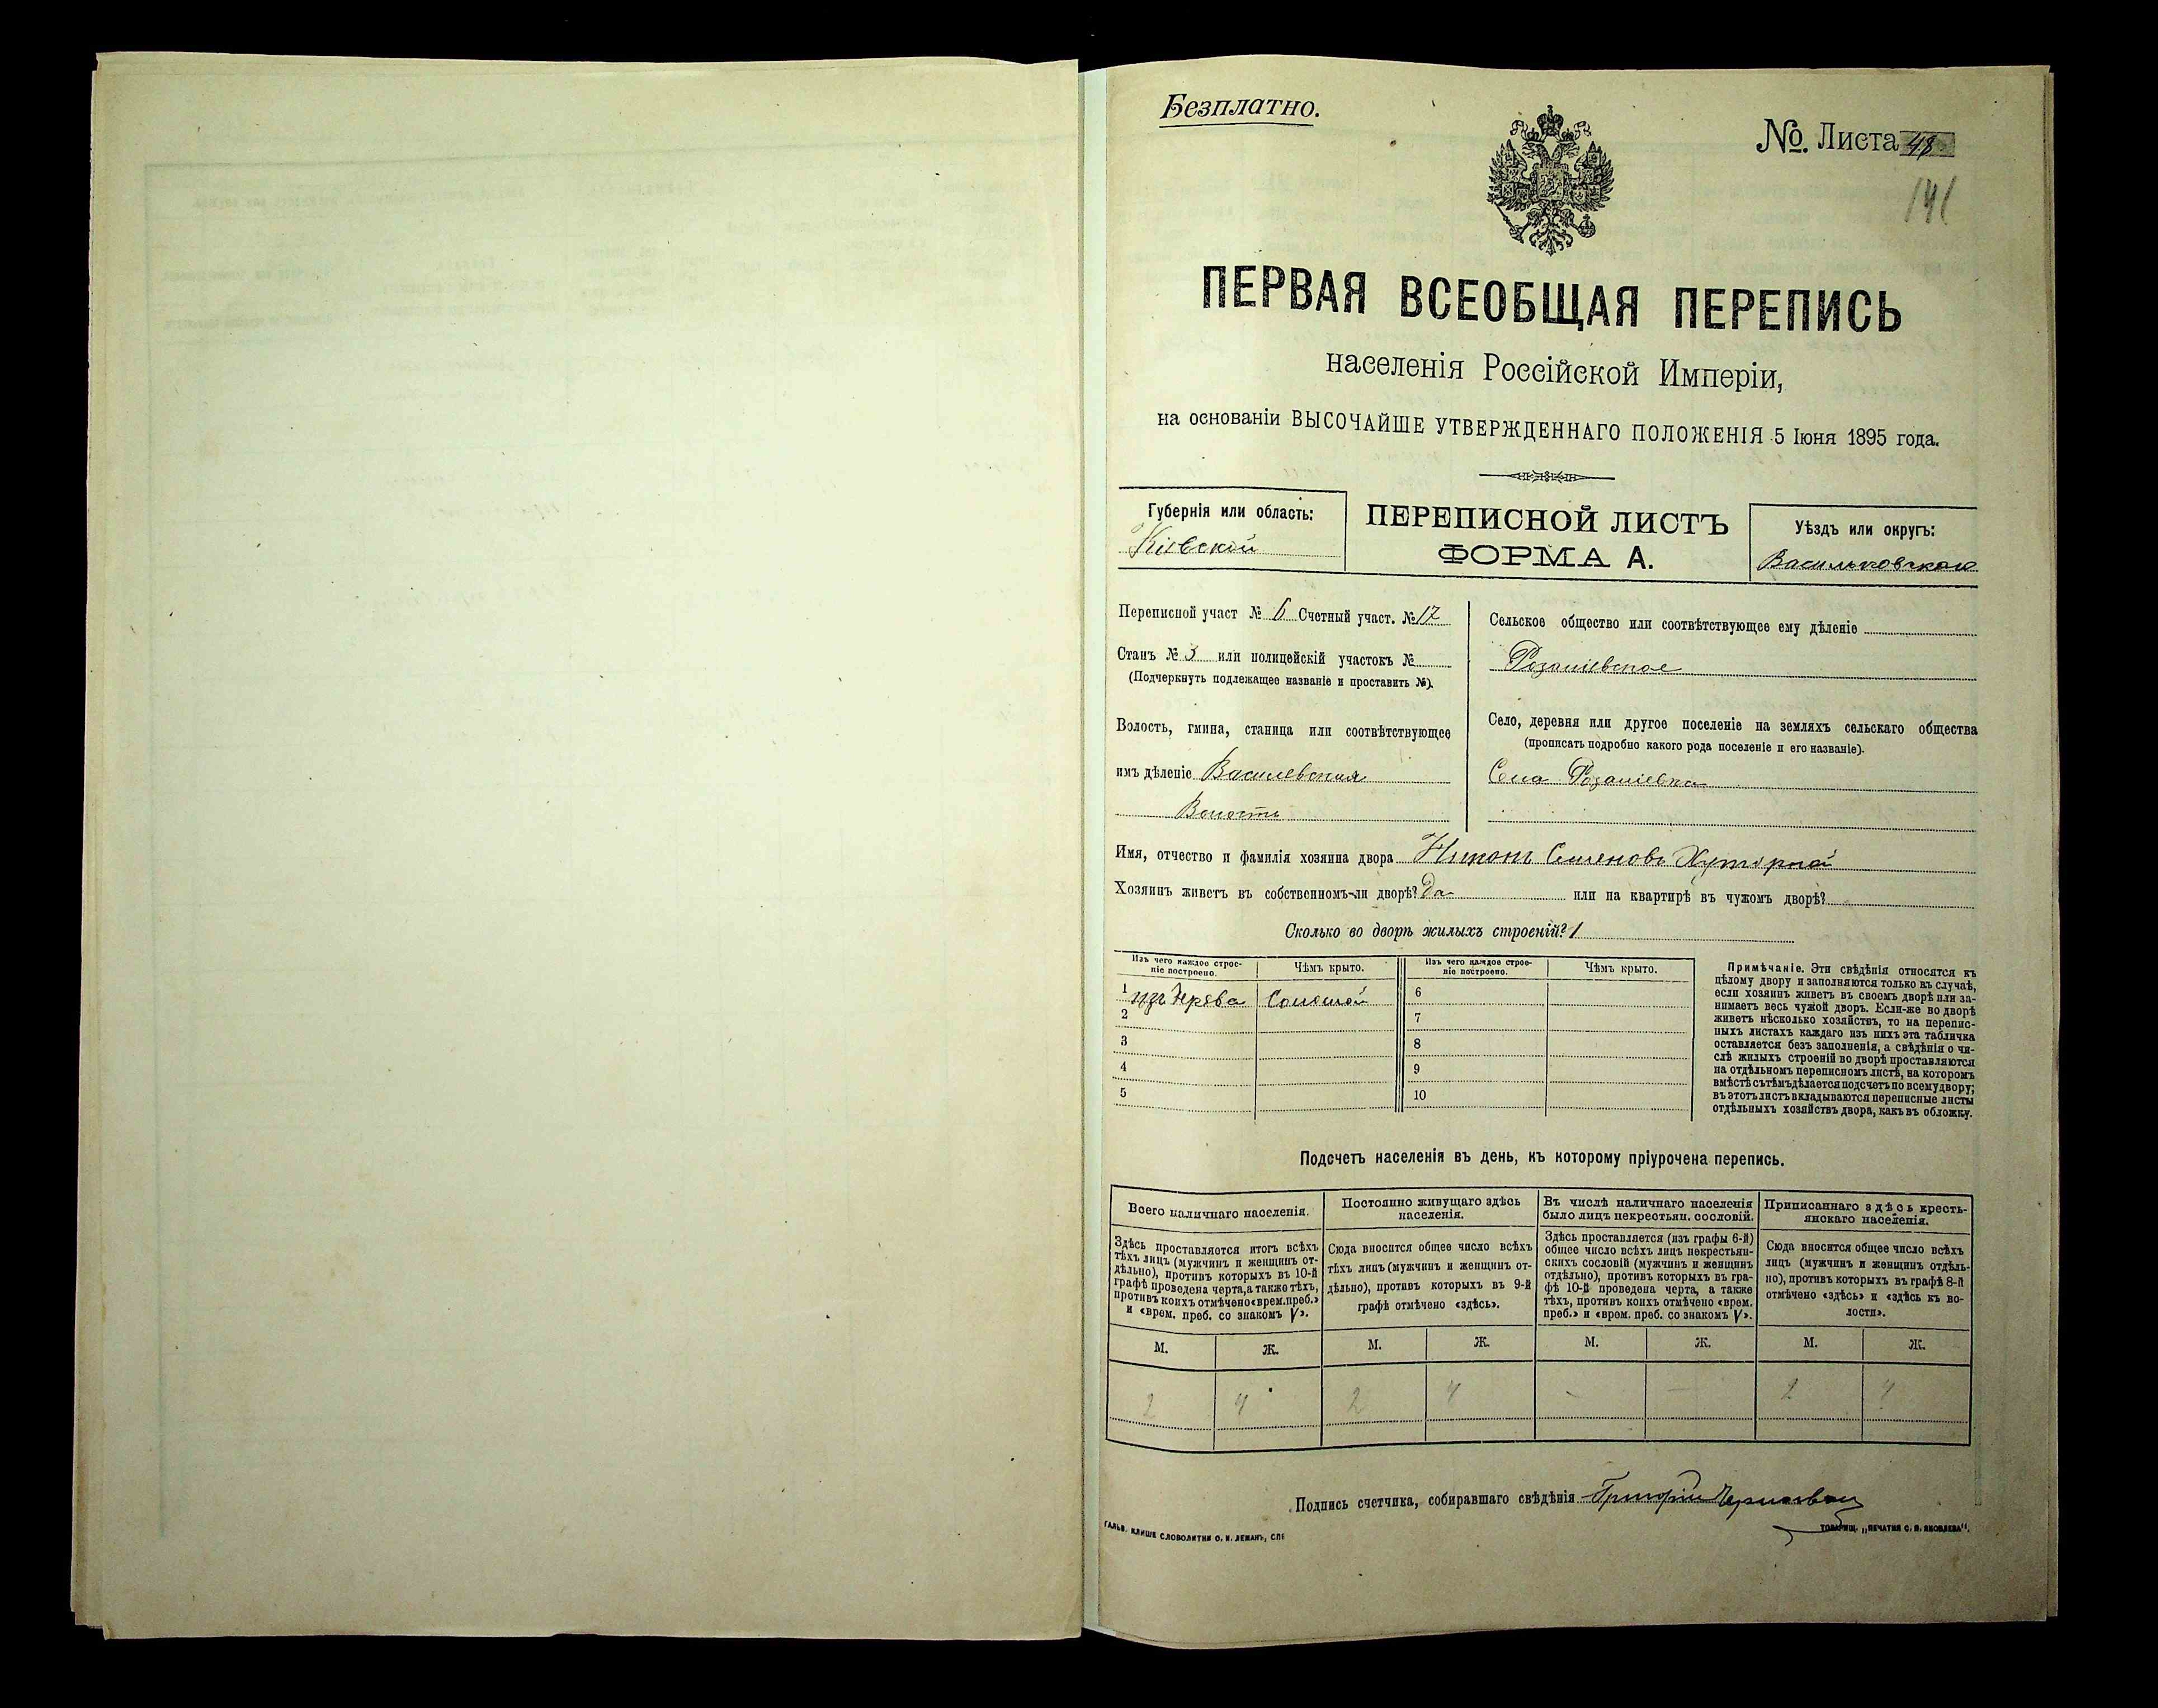 Безплатно.
№ Листа 48
141
ПЕРВАЯ ВСЕОБЩАЯ ПЕРЕПИСЬ
населенія Россійской Имперіи,
на основаніи ВЫСОЧАЙШЕ УТВЕРЖДЕННАГО ПОЛОЖЕНІЯ 5 Іюня 1895 года.
Губернія или область:
Кіевской
ПЕРЕПИСНОЙ ЛИСТЪ
ФОРМА А.
Уѣздъ или округъ:
Васильковскаго
Переписной участ № 6 Счетный участ. № 17
Станъ № 3 или полицейскій участокъ №
(Подчеркнуть подлежащее названіе и проставить №).
Волость, гмина, станица или соотвѣтствующее
имъ дѣленіе Васильевская
Волость
Сельское общество или соотвѣтствующее ему дѣленіе
Розаліевское
Село, деревня или другое поселеніе на земляхъ сельскаго общества
(прописать подробно какого рода поселеніе и его названіе).
Село Розаліевка
Имя, отчество и фамилія хозяина двора Семеновъ Хуторной
Хозяинъ живетъ въ собственномъ-ли дворѣ? Да или на квартирѣ въ чужомъ дворѣ?
Сколько во дворѣ жилыхъ строеній? 1
Изъ чего каждое строе-
ніе построено.
Чѣмъ крыто.
Изъ чего каждое строе-
ніе построено.
Чѣмъ крыто.
1 изъ дерева Соломой 6
2 7
3 8
4 9
5 10
Примѣчаніе. Эти свѣдѣнія относятся къ
цѣлому двору и заполняются только въ случаѣ,
если хозяинъ живетъ въ своемъ дворѣ или за-
нимаетъ весь чужой дворъ. Если-же во дворѣ
живетъ нѣсколько хозяйствъ, то на перепис-
ныхъ листахъ каждаго изъ нихъ эта табличка
оставляется безъ заполненія, а свѣдѣнія о чи-
слѣ жилыхъ строеній во дворѣ проставляются
на отдѣльномъ переписномъ листѣ, на которомъ
вмѣстѣ съ тѣмъ дѣлается подсчетъ по всему двору;
въ этотъ листъ вкладываются переписные листы
отдѣльныхъ хозяйствъ двора, какъ въ обложку.
Подсчетъ населенія въ день, къ которому пріурочена перепись.
Всего наличнаго населенія.
Здѣсь проставляется итогъ всѣхъ
тѣхъ лицъ (мужчинъ и женщинъ от-
дѣльно), противъ которыхъ въ 10-й
графѣ проведена черта, а также тѣхъ,
противъ коихъ отмѣчено «врем. преб.»
и «врем. преб. со знакомъ V».
Постоянно живущаго здѣсь
населенія.
Сюда вносится общее число всѣхъ
тѣхъ лицъ (мужчинъ и женщинъ от-
дѣльно), противъ которыхъ въ 9-й
графѣ отмѣчено «здѣсь».
Въ числѣ наличнаго населенія
было лицъ некрестьян. сословій.
Здѣсь проставляется (изъ графы 6-й)
общее число всѣхъ лицъ некрестьян-
скихъ сословій (мужчинъ и женщинъ
отдѣльно), противъ которыхъ въ гра-
фѣ 10-й проведена черта, а также
тѣхъ, противъ коихъ отмѣчено «врем.
преб.» и «врем. преб. со знакомъ V».
Приписаннаго здѣсь кресть-
янскаго населенія.
Сюда вносится общее число всѣхъ
лицъ (мужчинъ и женщинъ отдѣль-
но), противъ которыхъ въ графѣ 8-й
отмѣчено «здѣсь» и «здѣсь къ во-
лости».
М. Ж. М. Ж. М. Ж. М. Ж.
2 4 2 4 - - 2 4
Подпись счетчика, собиравшаго свѣдѣнія Григорій
ГАЛЬВ. КЛИШЕ СЛОВОЛИТНИ О. И. ЛЕМАНЪ, СПБ
ТОВАРИЩ. „ПЕЧАТНЯ С. П. ЯКОВЛЕВА".